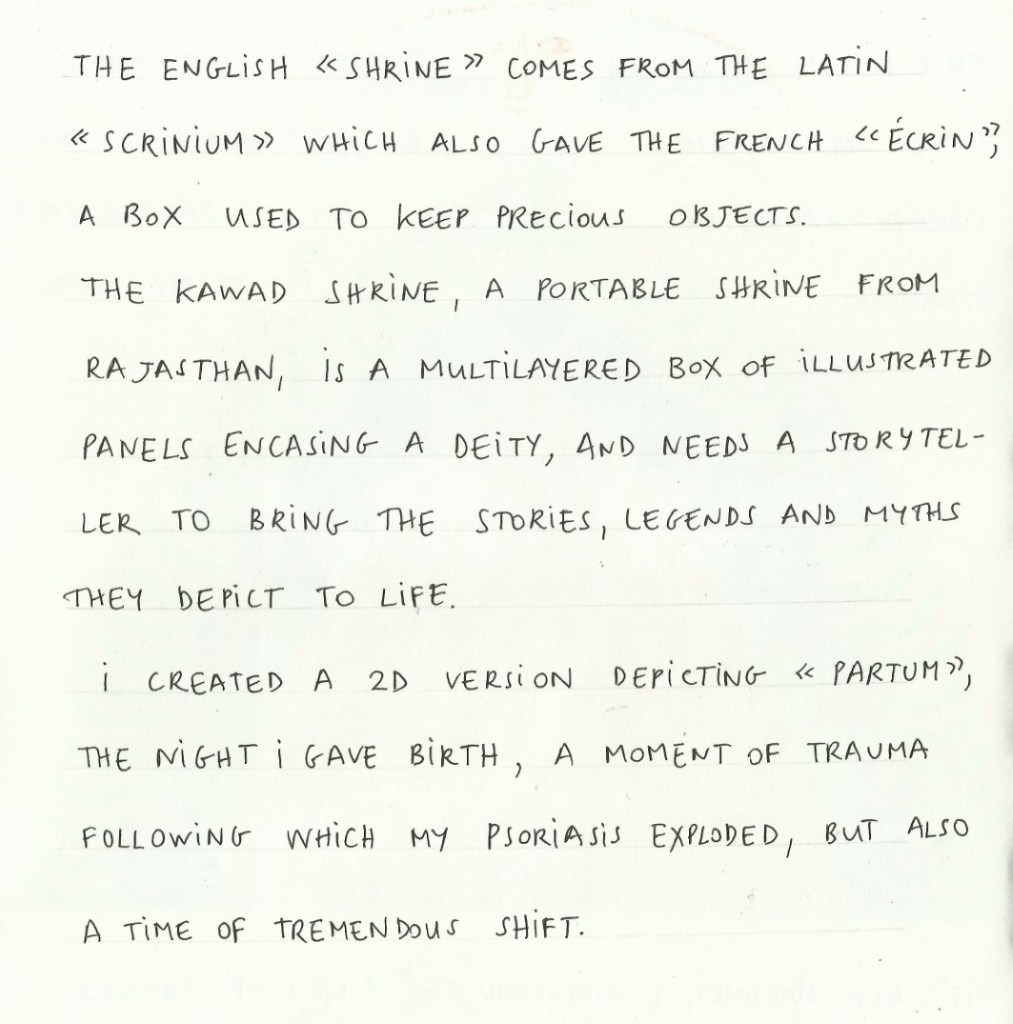 THE ENGLISH « SHRINE » COMES FROM THE LATIN
« SCRINIUM » WHICH ALSO GAVE THE FRENCH « ÉCRIN »,
A BOX USED TO KEEP PRECIOUS OBJECTS.
THE KAWAD SHRINE, A PORTABLE SHRINE FROM
RAJASTHAN, IS A MULTILAYERED BOX OF ILLUSTRATED
PANELS ENCASING A DEITY, AND NEEDS A STORYTEL-
LER TO BRING THE STORIES, LEGENDS AND MYTHS
THEY DEPICT TO LIFE.
I CREATED A 2D VERSION DEPICTING « PARTUM »,
THE NIGHT I GAVE BIRTH, A MOMENT OF TRAUMA
FOLLOWING WHICH MY PSORIASIS EXPLODED, BUT ALSO
A TIME OF TREMENDOUS SHIFT.